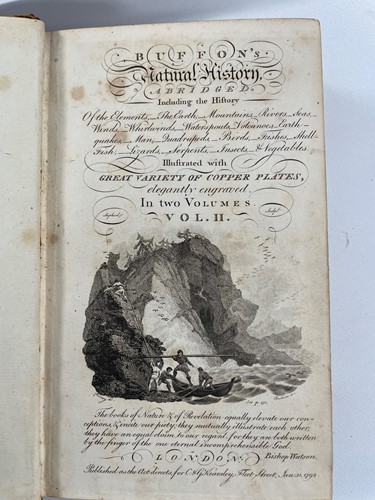 BUFFON's
Natural History,
ABRIDGED.
Including the History
Of the Elements, The Earth, Mountains, Rivers, Seas,
Winds, Whirlwinds, Waterspouts, Volcanoes, Earth-
quakes, Man, Quadrupeds, Birds, Fishes, Shell-
Fish, Lizards, Serpents, Insects & Vegetables.
Illustrated with
GREAT VARIETY OF COPPER PLATES,
elegantly engraved.
In two VOLUMES.
VOL. II.
Sculpt.
The books of Nature & of Revelation equally elevate our con-
ceptions, & incite our piety; they mutually illustrate each other;
they have an equal claim to our regard, for they are both written
by the finger of the one eternal incomprehensible God.
Bishop Watson.
LONDON.
Published as the Act directs, for C. & G. Kearsley, Fleet Street, Jan. 21. 1792.